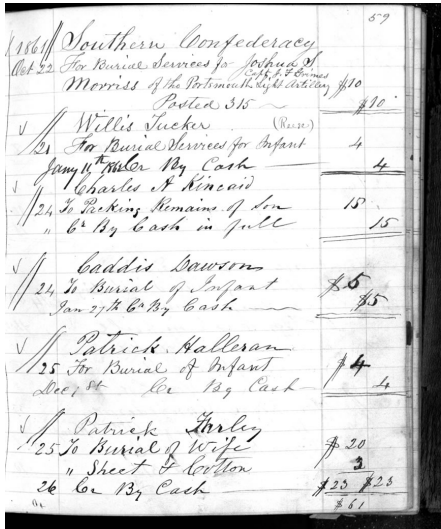 59
1861 Southern Confederacy
Oct 22 For Burial Services for Joshua S
Capt J. F Grimes
Morriss of the Portsmouth Light Artillery $10
Posted 315 $10
Willis Tucker
21 For Burial Services for Infant 4
Jany 11th Cr By Cash 4
Charles A Kincaid
24 To Packing Remains of Son 15
" Cr By Cash in full 15
Caddis Dawson
24 To Burial of Infant $5
Jan 27th Cr By Cash $5
Patrick Halleran
25 For Burial of Infant $4
Dec 7 Cr By Cash 4
Patrick
25 To Burial of Wife $20
" Sheet & Cotton 3
26 Cr By Cash $23 $23
$61